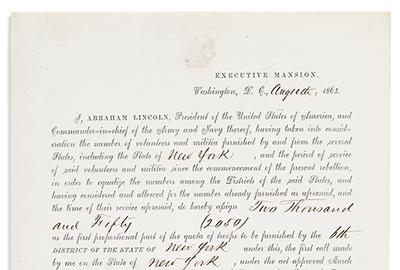 EXECUTIVE MANSION,
Washington, D. C., August , 1863.
I, ABRAHAM LINCOLN, President of the United States of America, and
Commander-in-chief of the Army and Navy thereof, having taken into consid-
eration the number of volunteers and militia furnished by and from the several
States, including the State of New York , and the period of service
of said volunteers and militia since the commencement of the present rebellion,
in order to equalize the numbers among the Districts of the said States, and
having considered and allowed for the number already furnished as aforesaid, and
the time of their service aforesaid, do hereby assign Two Thousand
and Fifty (2050)
as the first proportional part of the quota of troops to be furnished by the 6th
DISTRICT OF THE STATE OF New York under this, the first call made
by me on the State of New York , under the act approved March